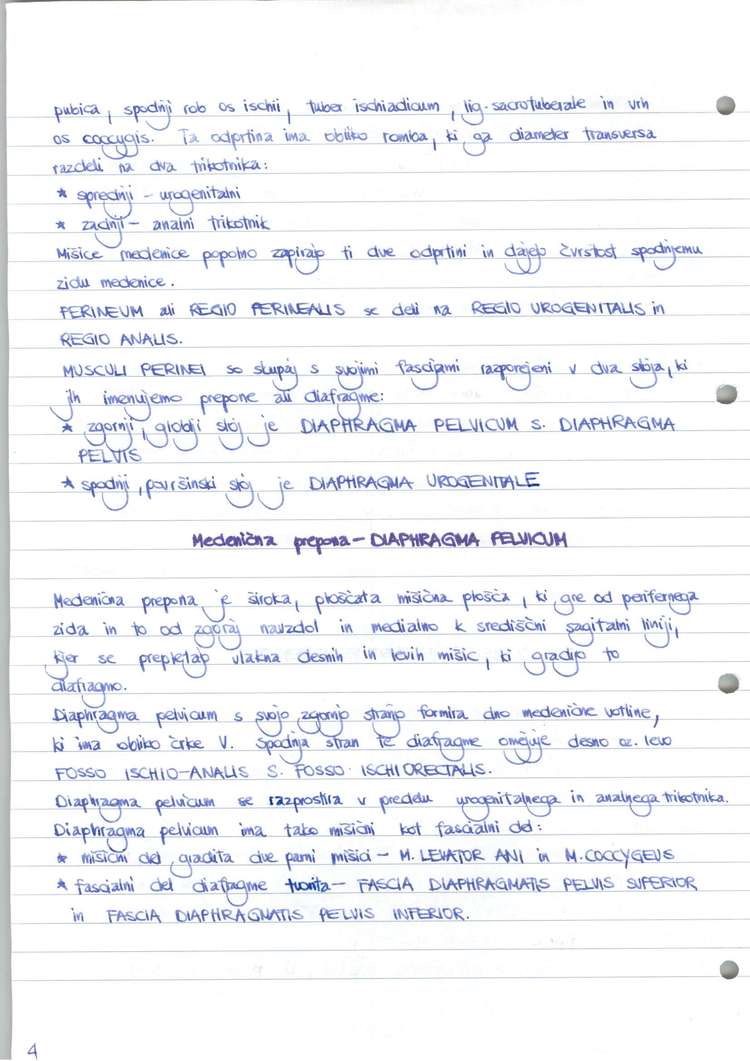 pubica, spodnji rob os ischii, tuber ischiadicum, lig. sacrotuberale in vrh
os coccygis. Ta odprtina ima obliko romba, ki ga diameter transversa
razdeli na dva trikotnika:
* sprednji - urogenitalni
* zadnji - analni trikotnik
Mišice medenice popolno zapirajo ti dve odprtini in dajejo čvrstost spodnjemu
zidu medenice.
PERINEUM ali REGIO PERINEALIS se deli na REGIO UROGENITALIS in
REGIO ANALIS.
MUSCULI PERINEI so skupaj s svojimi fascijami razporejeni v dva sloja, ki
jih imenujemo prepone ali diafragme:
* zgornji, globlji sloj je DIAPHRAGMA PELVICUM S. DIAPHRAGMA
PELVIS
* spodnji, površinski sloj je DIAPHRAGMA UROGENITALE
Medenična prepona - DIAPHRAGMA PELVICUM
Medenična prepona je široka, ploščata mišična plošča, ki gre od perifernega
zida in to od zgoraj navzdol in medialno k središčni sagitalni liniji,
kjer se prepletajo vlakna desnih in levih mišic, ki gradijo to
diafragmo.
Diaphragma pelvicum s svojo zgornjo stranjo formira dno medenične votline,
ki ima obliko črke V. Spodnja stran te diafragme omejuje desno oz. levo
FOSSO ISCHIO-ANALIS S. FOSSO ISCHIORECTALIS.
Diaphragma pelvicum se razprostira v predelu urogenitalnega in analnega trikotnika.
Diaphragma pelvicum ima tako mišični kot fascialni del:
* mišični del gradita dve parni mišici - M. LEVATOR ANI in M. COCCYGEUS
* fascialni del diafragme tvorita - FASCIA DIAPHRAGMATIS PELVIS SUPERIOR
in FASCIA DIAPHRAGMATIS PELVIS INFERIOR.
4